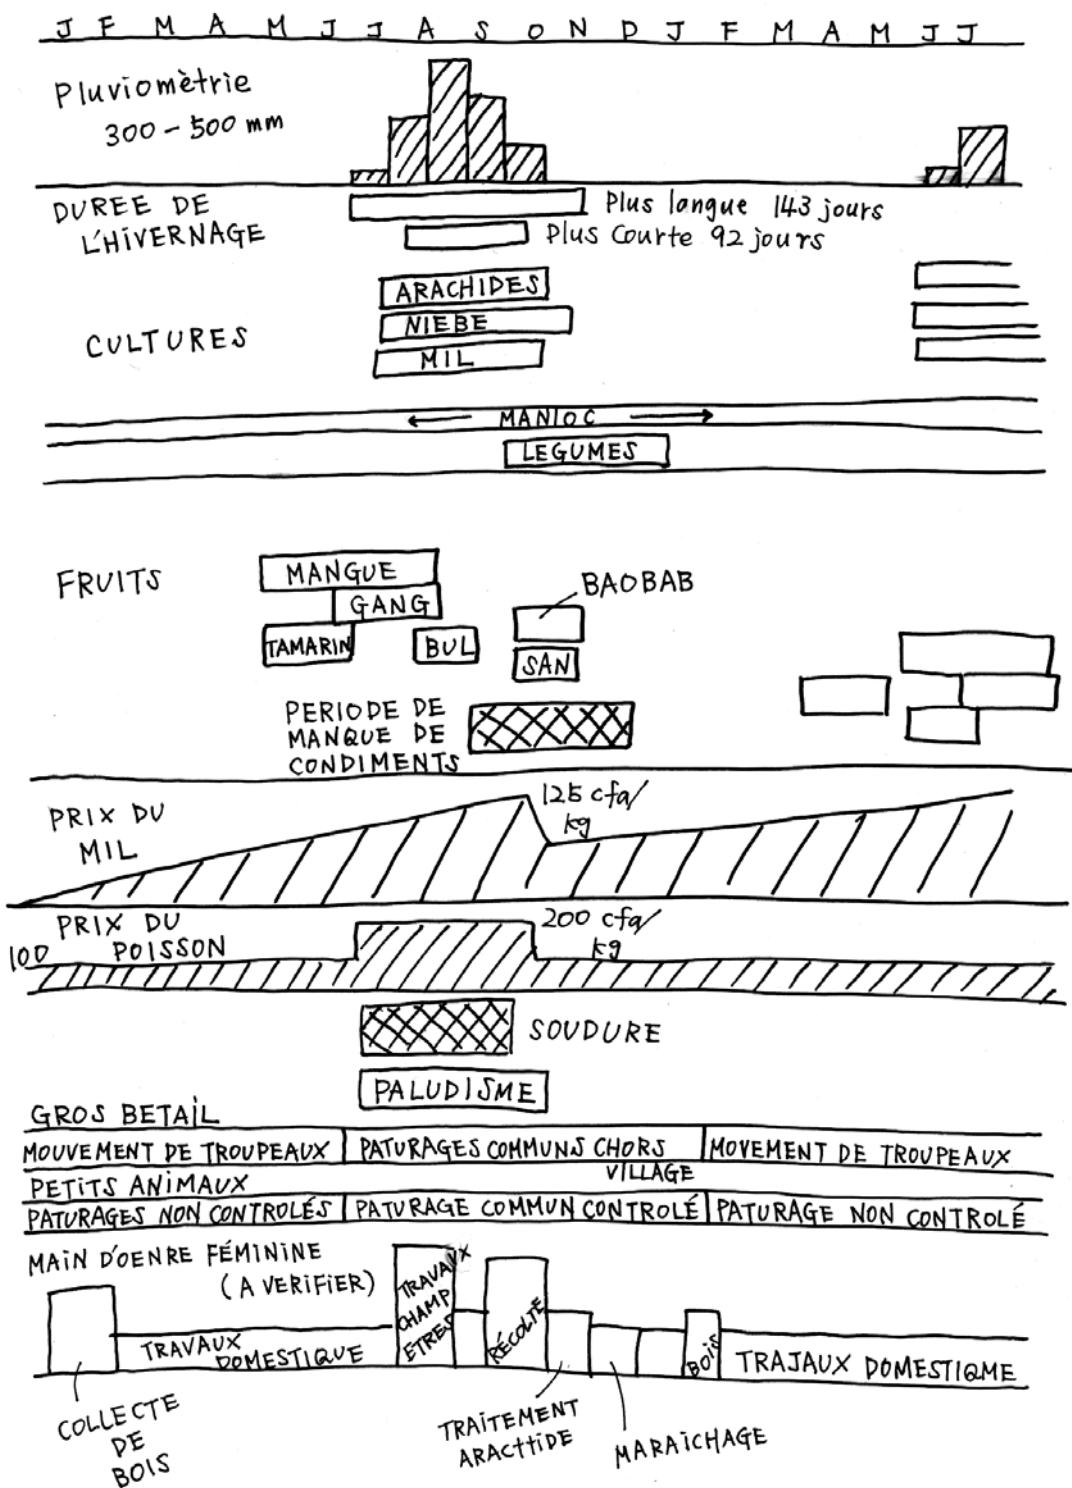 J F M A M J J A S O N D J F M A M J J
Pluviomètrie
300 - 500 mm
DUREE DE
L'HIVERNAGE
Plus langue 143 jours
Plus Courte 92 jours
CULTURES
ARACHIDES
NIEBE
MIL
MANIOC
LEGUMES
FRUITS
MANGUE
GANG
TAMARIN
BUL
BAOBAB
SAN
PERIODE DE
MANQUE DE
CONDIMENTS
PRIX DU
MIL
125 cfa/
kg
PRIX DU
POISSON
100
200 cfa/
kg
SOUDURE
PALUDISME
GROS BETAIL
MOUVEMENT DE TROUPEAUX PATURAGES COMMUNS CHORS MOVEMENT DE TROUPEAUX
VILLAGE
PETITS ANIMAUX
PATURAGES NON CONTROLÉS PATURAGE COMMUN CONTROLÉ PATURAGE NON CONTROLÉ
MAIN D'OENRE FÉMININE
(A VERIFIER)
TRAVAUX
DOMESTIQUE
TRAVAUX
CHAMP
ETRES
RÉCOLTE
BOIS
TRAJAUX DOMESTIQME
COLLECTE
DE
BOIS
TRAITEMENT
ARACTTIDE
MARAICHAGE